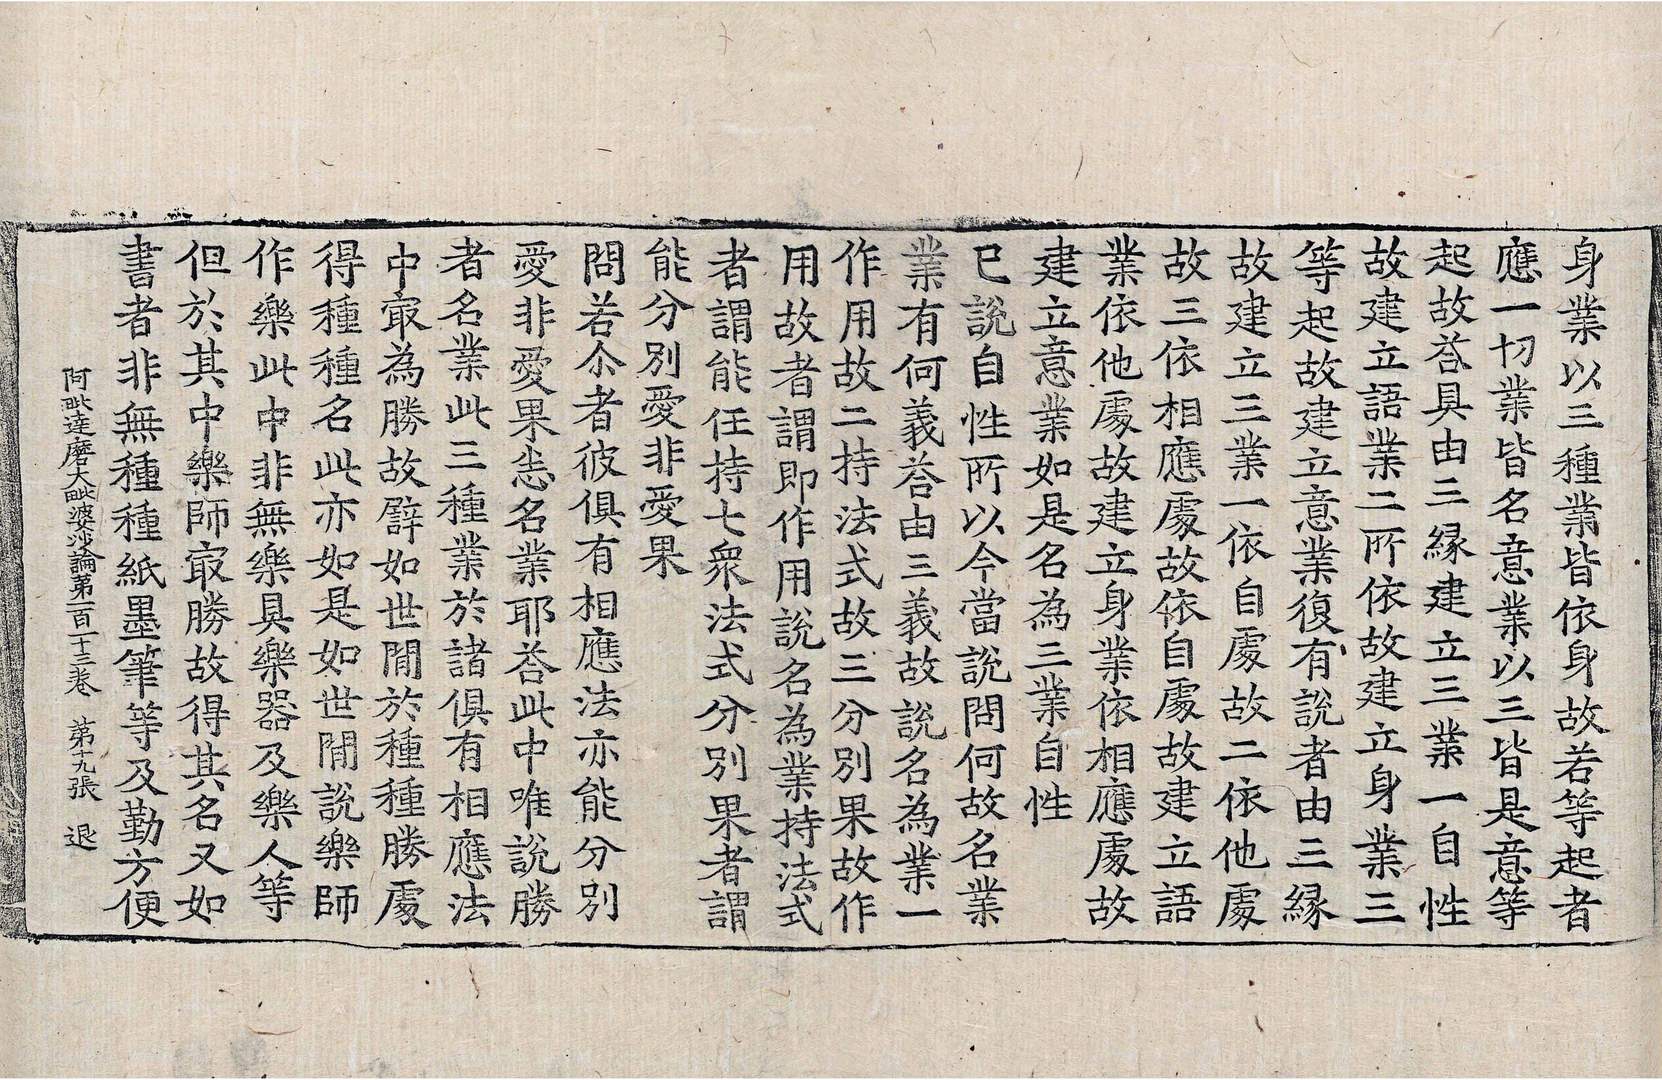 身業以三種業皆依身故若等起者
應一切業皆名意業以三皆是意等
起故荅具由三緣建立三業一自性
故建立語業二所依故建立身業三
等起故建立意業復有說者由三緣
故建立三業一依自處故二依他處
故三依相應處故依自處故建立語
業依他處故建立身業依相應處故
建立意業如是名為三業自性
已說自性所以今當說問何故名業
業有何義荅由三義故說名為業一
作用故二持法式故三分別果故作
用故者謂即作用說名為業持法式
者謂能任持七衆法式分別果者謂
能分別愛非愛果
問若尒者彼俱有相應法亦能分別
愛非愛果恙名業耶荅此中唯說勝
者名業此三種業於諸俱有相應法
中㝡為勝故譬如世間於種種勝處
得種種名此亦如是如世間說樂師
作樂此中非無樂具樂器及樂人等
但於其中樂師㝡勝故得其名又如
書者非無種種紙墨筆等及勤方便
阿毗達磨大毗婆沙論第一百一十三卷 第十九張 退